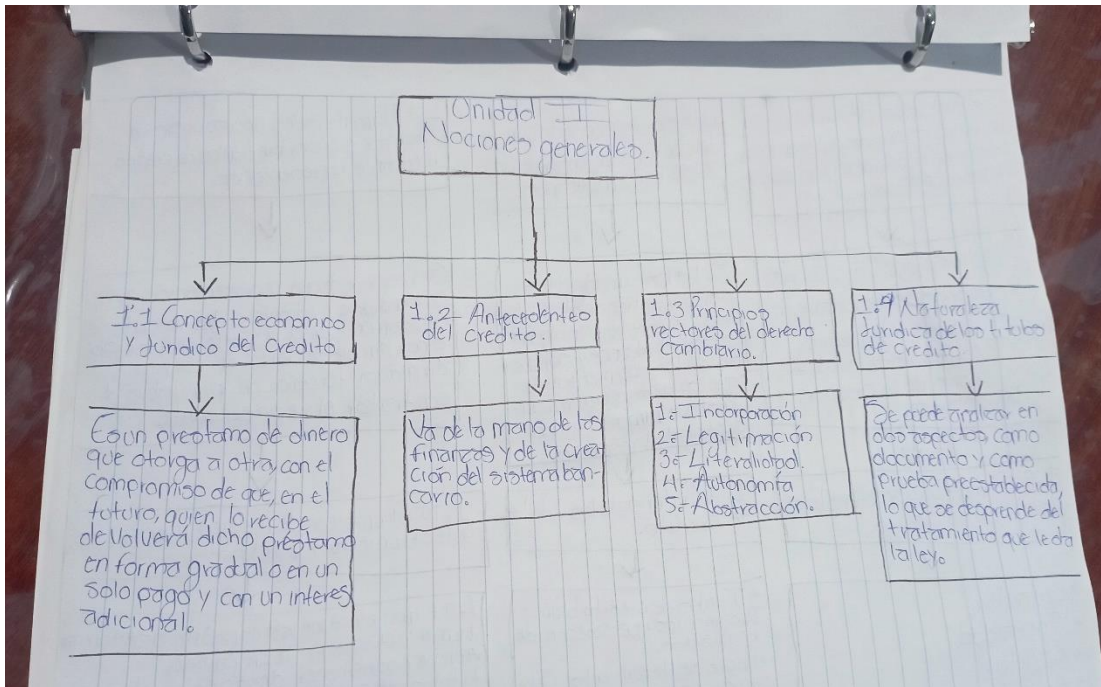 Unidad I
Nociones generales.
1.1 Concepto economico
y Jurídico del credito
Es un prestamo de dinero
que otorga a otra, con el
compromiso de que, en el
futuro, quien lo recibe
devolverá dicho préstamo
en forma gradual o en un
solo pago y con un interes
adicional.
1.2- Antecedentes
del credito.
Va de la mano de las
finanzas y de la crea
ción del sistema ban-
cario.
1.3 Principios
rectores del derecho
Cambiario.
1.- Incorporación
2.- Legitimación
3.- Literalidad.
4.- Autonomía
5.- Abstracción.
1.4 Naturaleza
Jurídica de los titulos
de credito.
Se puede analizar en
dos aspectos como
documento y como
prueba preestablecida,
lo que se desprende del
tratamiento que le da
la ley.